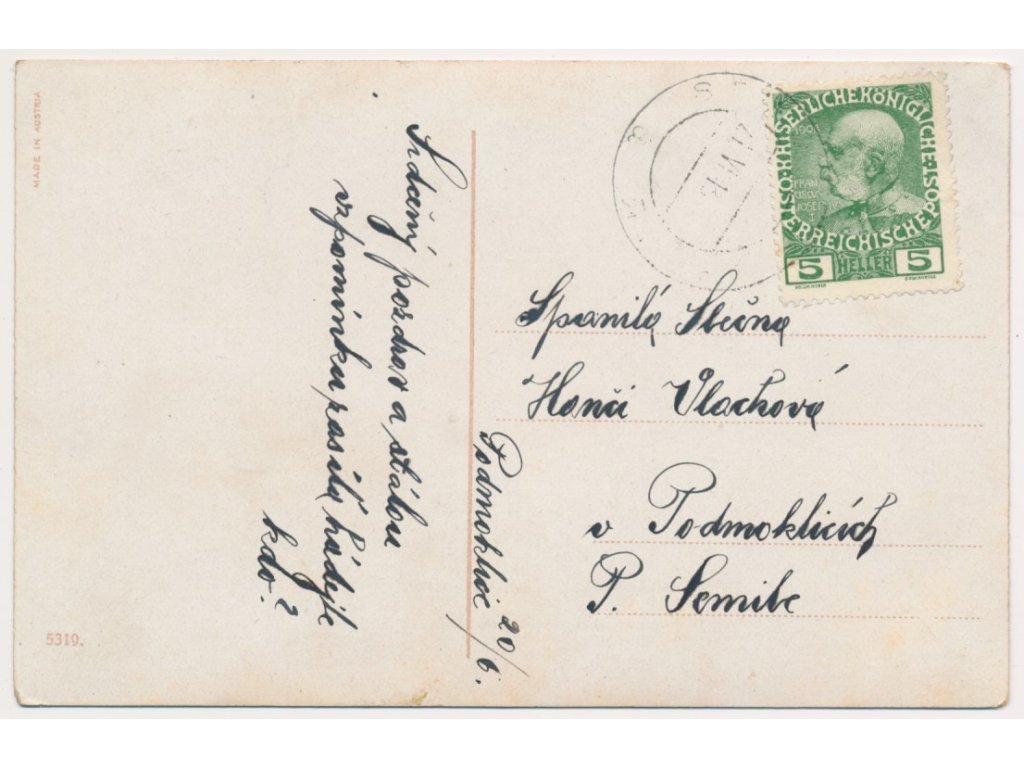 MADE IN AUSTRIA
Srdečný pozdrav a stálou
vzpomínku zasílá hádejte
kdo?
Podmoklice 20/6.
5319.
KAISERLICHE KÖNIGLICHE
ÖSTERREICHISCHE POST
1908
FRAN
CISCVS
IOSEPHVS
I
5 HELLER 5
Spanilá Slečna
Hanči Vlachová
v Podmoklicích
P. Semile